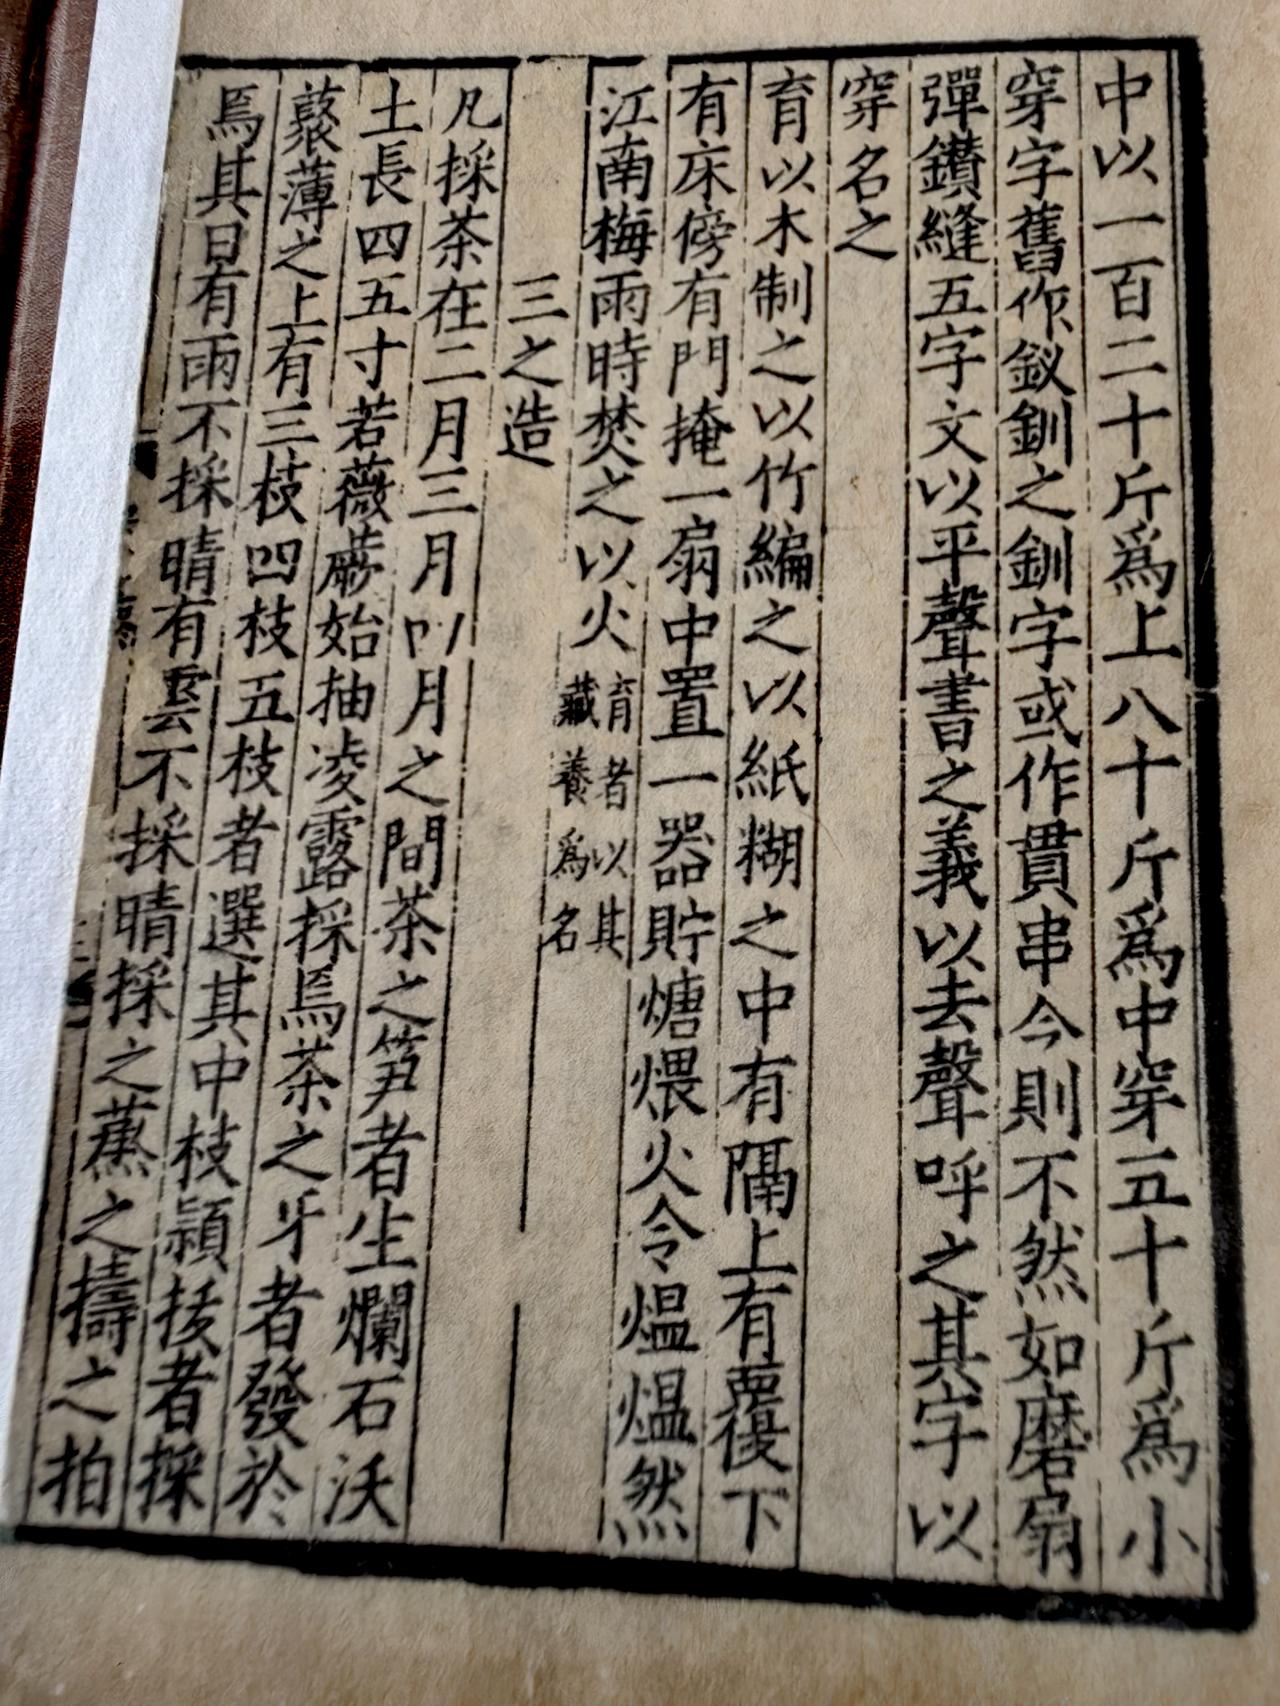 中以一百二十斤爲上八十斤爲中穿五十斤爲小
穿字舊作釵釧之釧字或作貫串今則不然如磨扇
彈鑽縫五字文以平聲書之義以去聲呼之其字以
穿名之
育以木制之以竹編之以紙糊之中有隔上有覆下
有床傍有門掩一扇中置一器貯煻煨火令熅熅然
江南梅雨時焚之以火育者以其藏養爲名
三之造
凡採茶在二月三月四月之間茶之笋者生爛石沃
土長四五寸若薇蕨始抽凌露採焉茶之牙者發於
藂薄之上有三枝四枝五枝者選其中枝頴拔者採
焉其日有雨不採晴有雲不採晴採之蒸之擣之拍